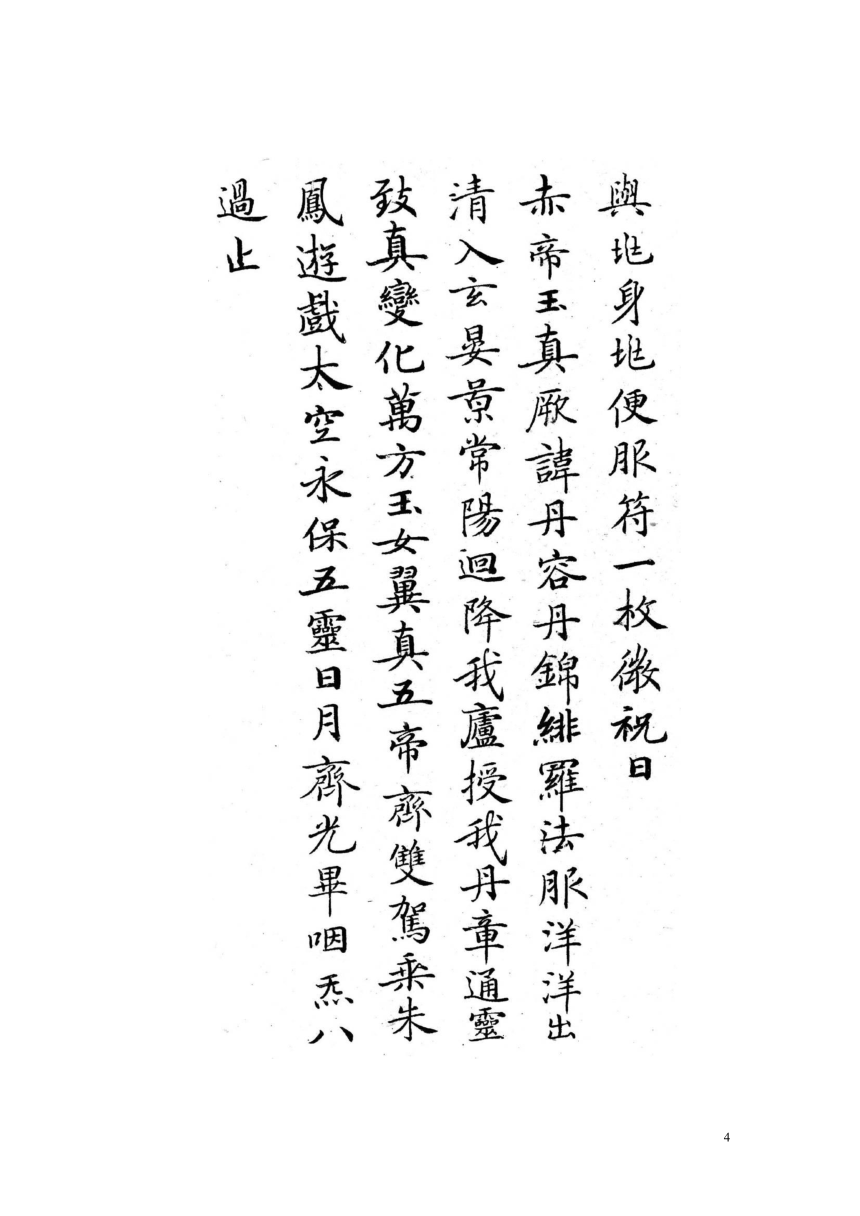 與圵身圵便服符一枚微祝曰
赤帝玉真厥諱丹容丹錦緋羅法服洋洋出
清入玄晏景常陽迴降我廬授我丹章通靈
致真變化萬方玉女翼真五帝齊雙駕乘朱
鳳遊戲太空永保五靈日月齊光畢咽炁八
過止
4